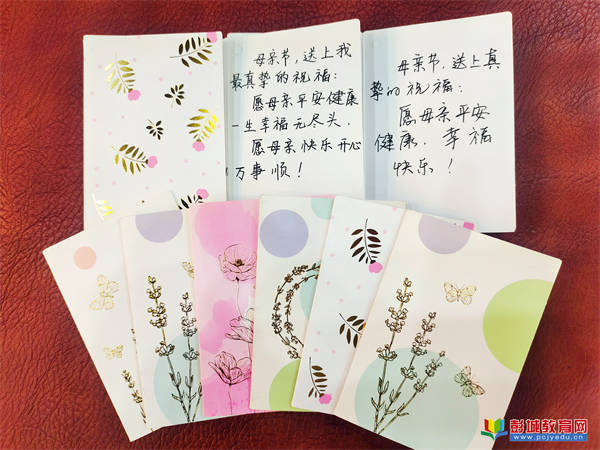 母亲节,送上我
最真挚的祝福:
愿母亲平安健康
一生幸福无尽头.
愿母亲快乐开心
万事顺!
母亲节,送上真
挚的祝福:
愿母亲平安
健康.幸福
快乐!
彭城教育网
www.pcjyedu.cn